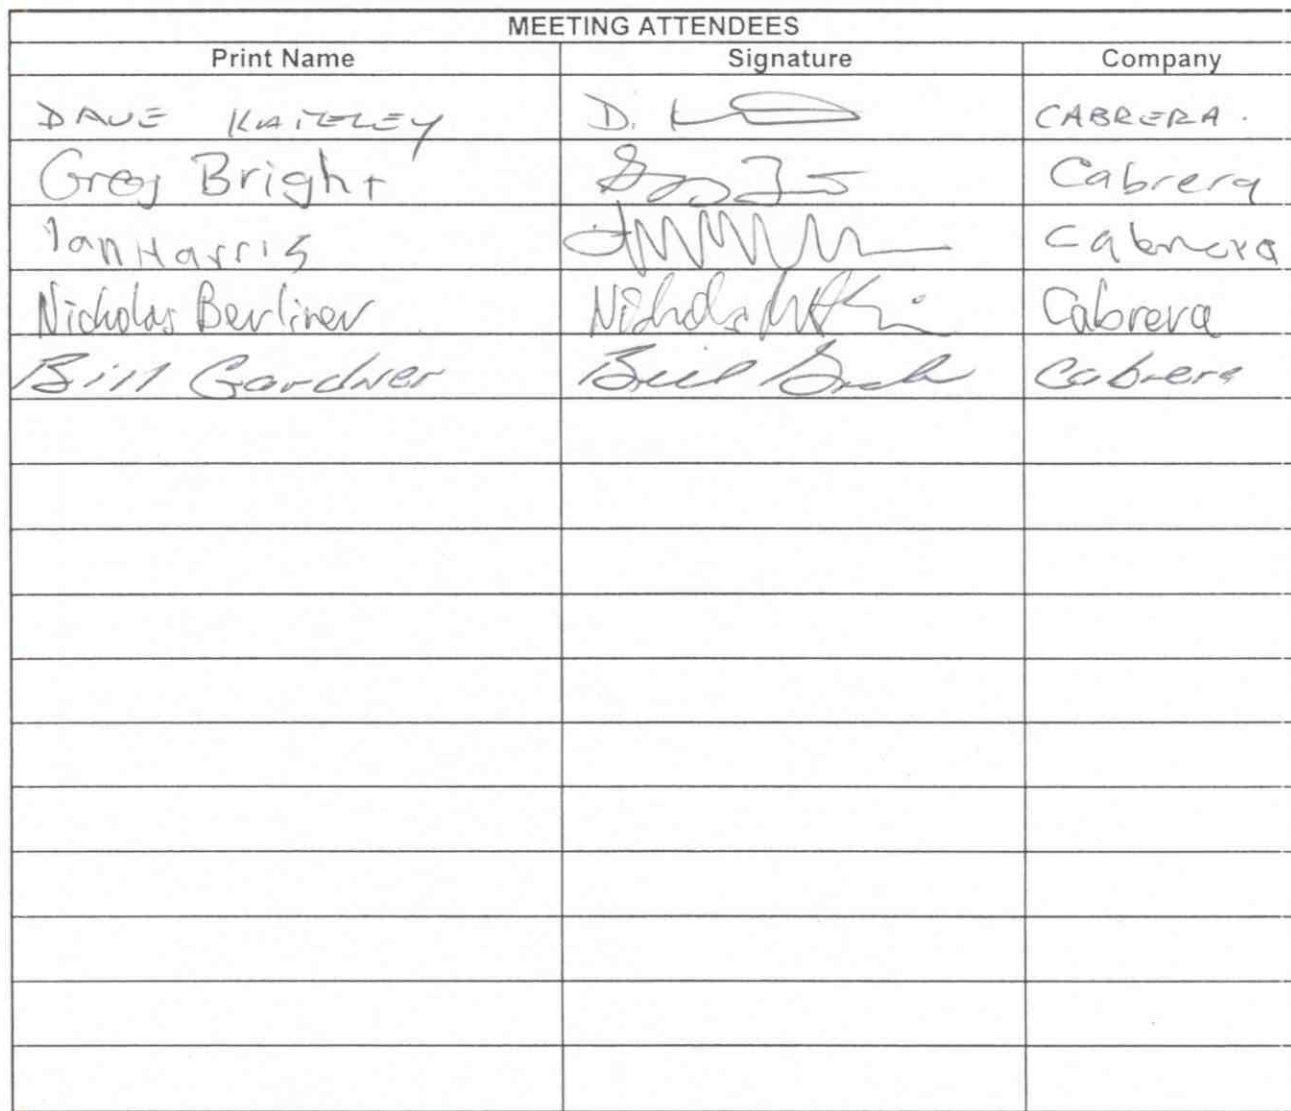 MEETING ATTENDEES
Print Name Signature Company
DAVE KAITELEY D. CABRERA.
Greg Bright Cabrera
Ian Harris Cabrera
Nicholas Berliner Nicholas Cabrera
Bill Gardner Bill Cabrera